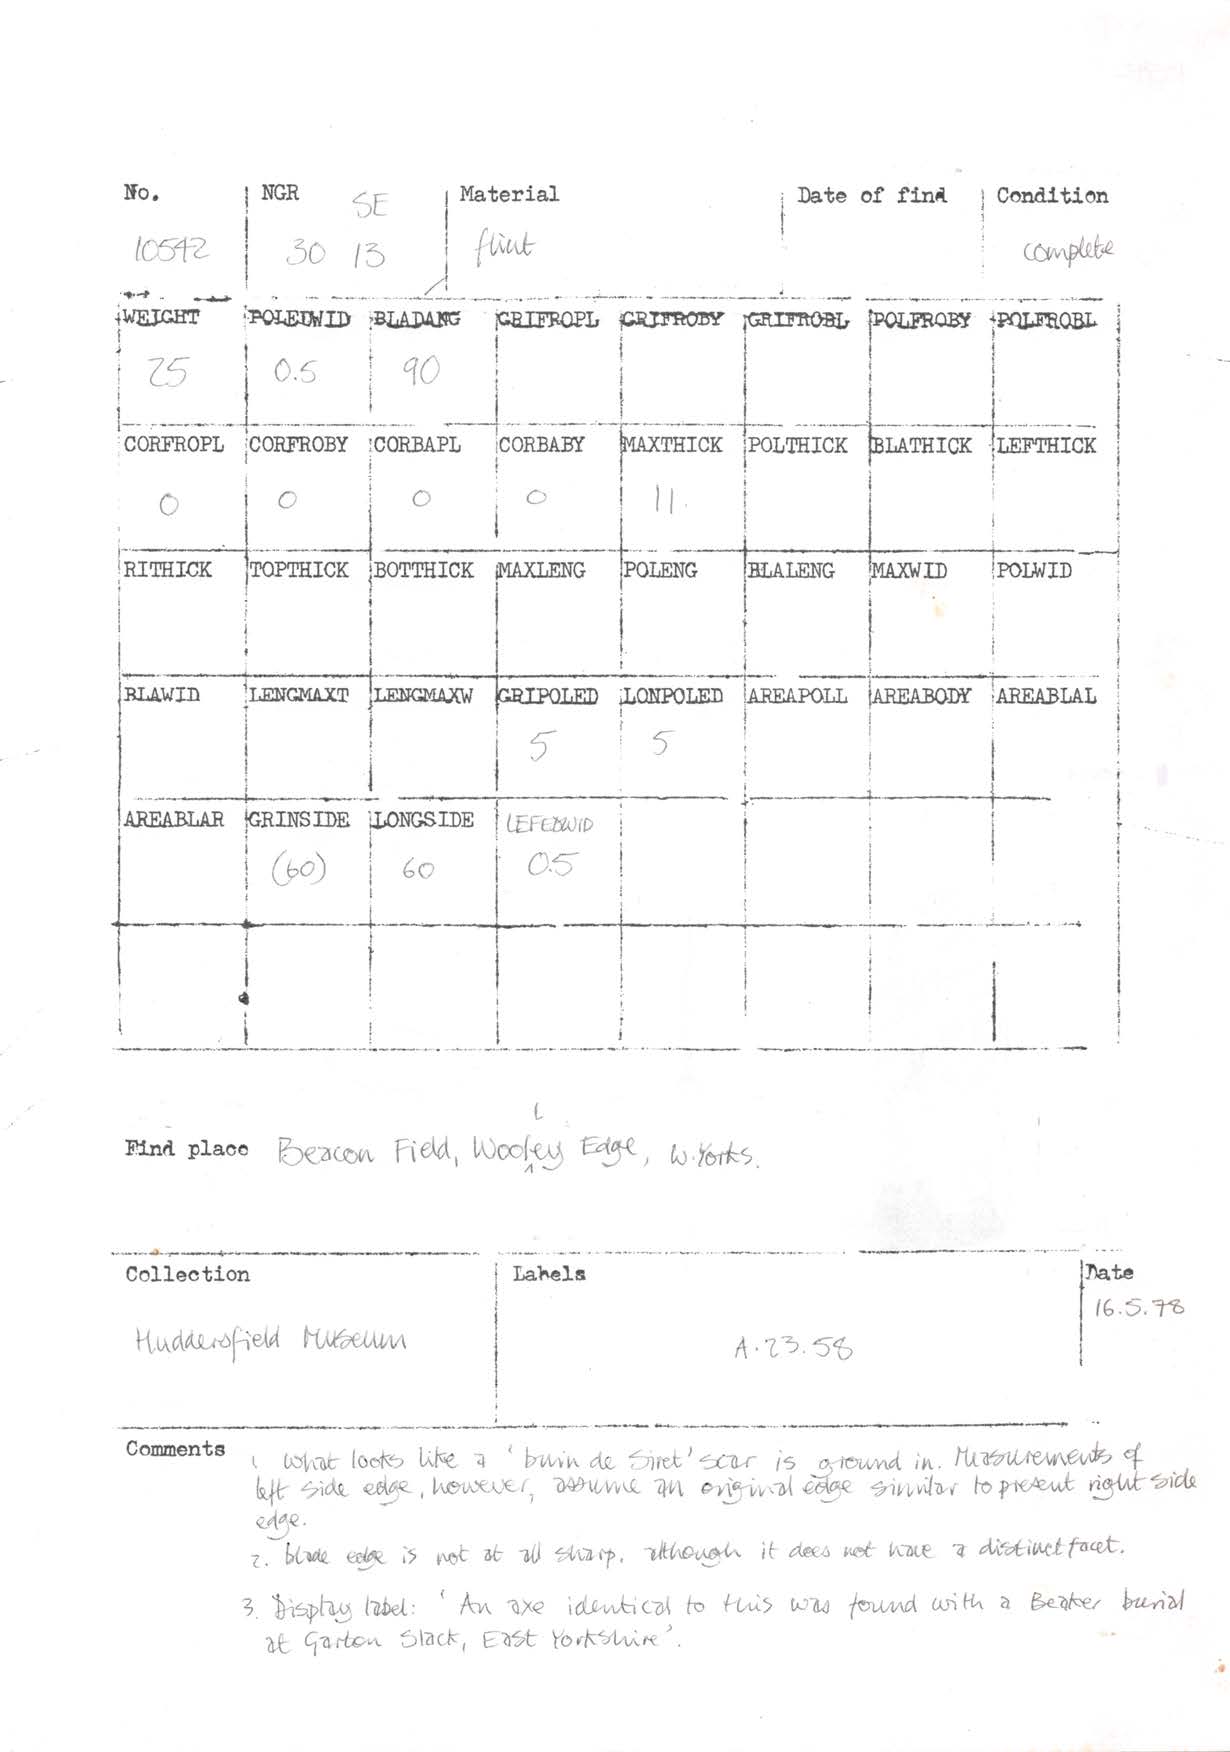 No. NGR SE Material Date of find Condition
10542 30 13 flint complete
WEIGHT POLEDWID BLADANG GRIFROPL GRIFROBY GRIFROBL POLFROBY POLFROBL
25 0.5 90
CORFROPL CORFROBY CORBAPL CORBABY MAXTHICK POLTHICK BLATHICK LEFTHICK
0 0 0 0 11.
RITHICK TOPTHICK BOTTHICK MAXLENG POLENG BLALENG MAXWID POLWID
BLAWID LENGMAXT LENGMAXW GRIPOLED LONPOLED AREAPOLL AREABODY AREABLAL
5 5
AREABLAR GRINSIDE LONGSIDE LEFEDWID
(60) 60 0.5
L
Find place Beacon Field, Wooley Edge, W. Yorks.
Collection Labels Date
16.5.78
Huddersfield Museum A.23.58
Comments 1. What looks like a 'burin de Siret' scar is ground in. Measurements of
left side edge, however, assume an original edge similar to present right side
edge.
2. blade edge is not at all sharp, although it does not have a distinct facet.
3. Display label: 'An axe identical to this was found with a Beaker burial
at Garton Slack, East Yorkshire'.